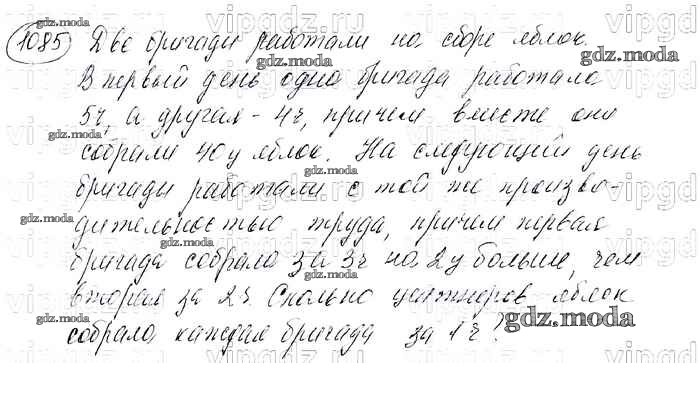 1085 Две бригады работали на сборе яблок.
В первый день одна бригада работала
5ч, а другая - 4ч, причем вместе они
собрали 40ц яблок. На следующий день
бригады работали с той же произво-
дительностью труда, причем первая
бригада собрала за 3ч на 2ц больше, чем
вторая за 2ч. Сколько центнеров яблок
собрала каждая бригада за 1ч?
gdz.moda
gdz.moda
gdz.moda
gdz.moda
gdz.moda
gdz.moda
gdz.moda
gdz.moda
gdz.moda
gdz.moda
gdz.moda
gdz.moda
vipgdz.ru
vipgdz.ru